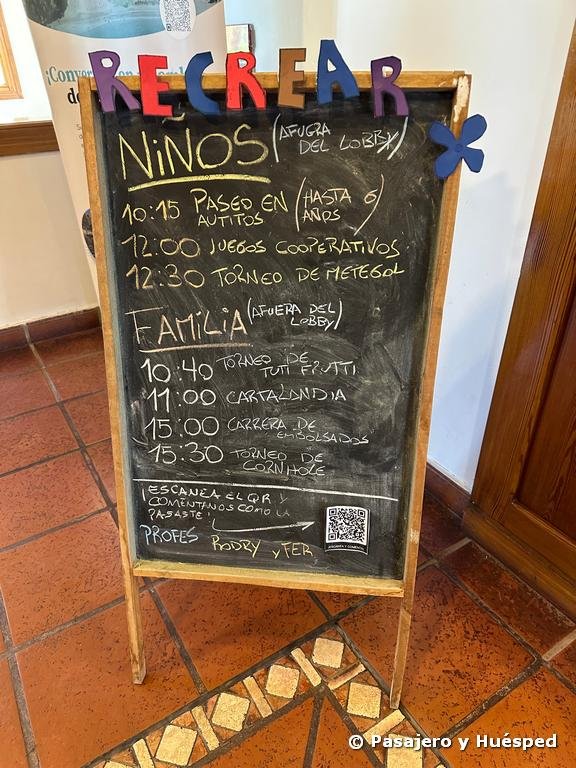 ¡Conver
de
RECREAR
NIÑOS (AFUERA
DEL LOBBY)
10:15 PASEO EN (HASTA 6
AUTITOS AÑOS)
12:00 JUEGOS COOPERATIVOS
12:30 TORNEO DE METEGOL
FAMILIA (AFUERA DEL
LOBBY)
10:40 TORNEO DE
TUTI FRUTTI
11:00 CARTALANDIA
15:00 CARRERA DE
EMBOLSADOS
15:30 TORNEO DE
CORNHOLE
¡ESCANEA EL QR Y
COMENTANOS COMO LA
PASASTE!
PROFES RODRY y FER
© Pasajero y Huésped